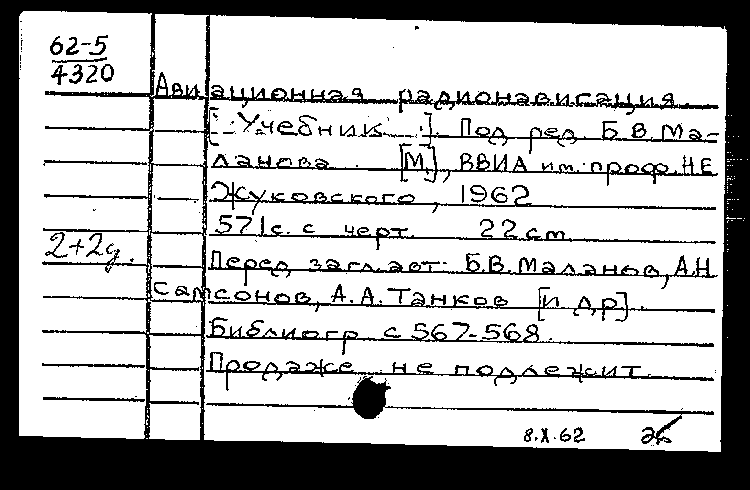 62-5
4320
Авиационная радионавигация
[Учебник]. Под ред. Б.В. Ма-
ланова. [М.], ВВИА им. проф. Н.Е.
Жуковского, 1962
571с. с черт. 22 см
2+2д.
Перед загл. авт: Б.В. Маланов, А.Н.
Самсонов, А.А. Танков [и др].
Библиогр с 567-568.
Продаже не подлежит.
8.X.62